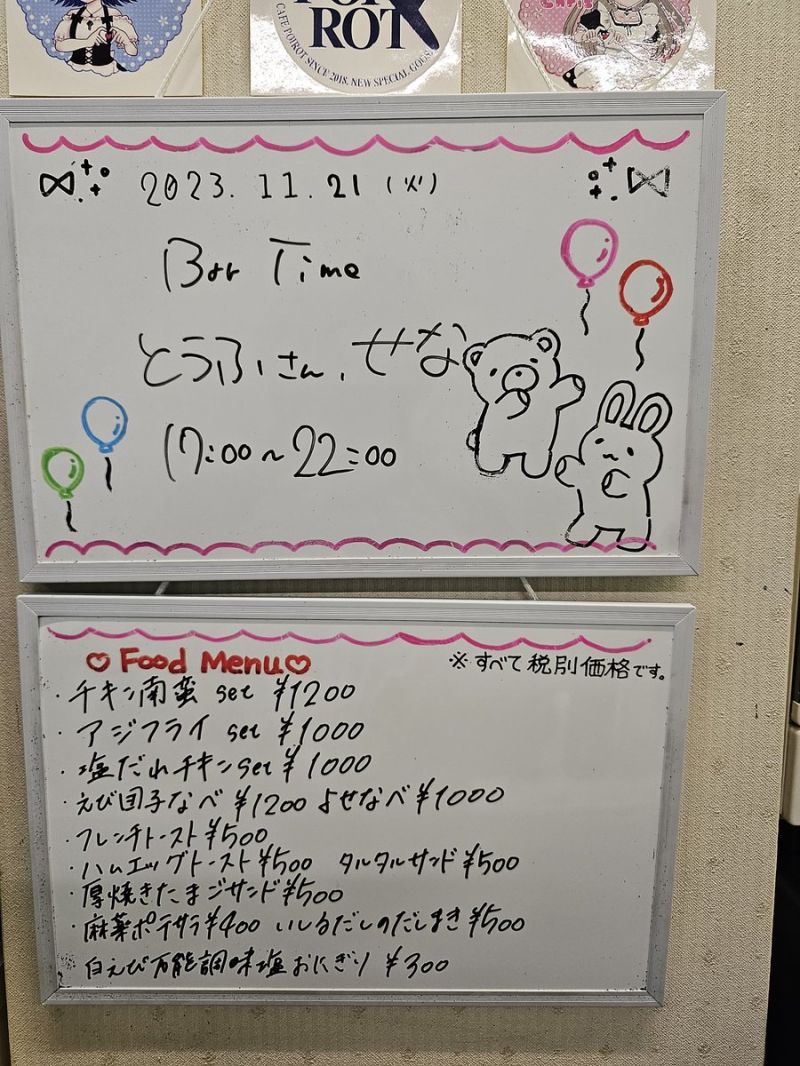 ROT
CAFE POIROT SINCE 2018. NEW SPECIAL GOODS
CAFE
2023.11.21(火)
Bar Time
とうふさん、せな
17:00~22:00
♡Food Menu♡
※すべて税別価格です。
・チキン南蛮 set ¥1200
・アジフライ set ¥1000
・塩だれチキンset ¥1000
・えび団子なべ ¥1200 よせなべ ¥1000
・フレンチトースト¥500
・ハムエッグトースト¥500 タルタルサンド¥500
・厚焼きたまごサンド¥500
・麻薬ポテサラ¥400 いしるだしのだしまき¥500
白えび万能調味塩おにぎり ¥300